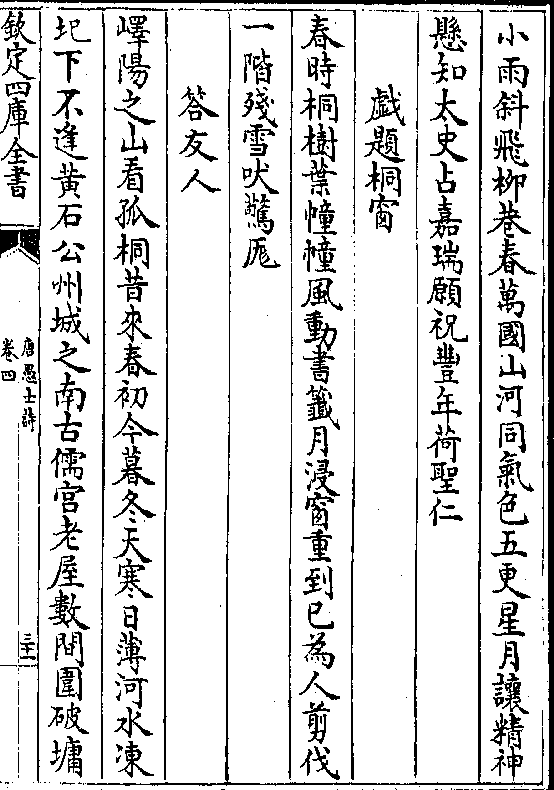 小雨斜飛柳巷春萬國山河同氣色五更星月讓精神
懸知太史占嘉瑞願祝豐年荷聖仁
戯題桐窗
春時桐樹葉幢幢風動書籤月浸窗重到已為人剪伐
一階殘雪吠驚厖
答友人
嶧陽之山看孤桐昔來春初今暮冬天寒日薄河水凍
圯下不逢黄石公州城之南古儒宫老屋數間圍破墉
欽定四庫全書
唐愚士詩
卷四
三十一